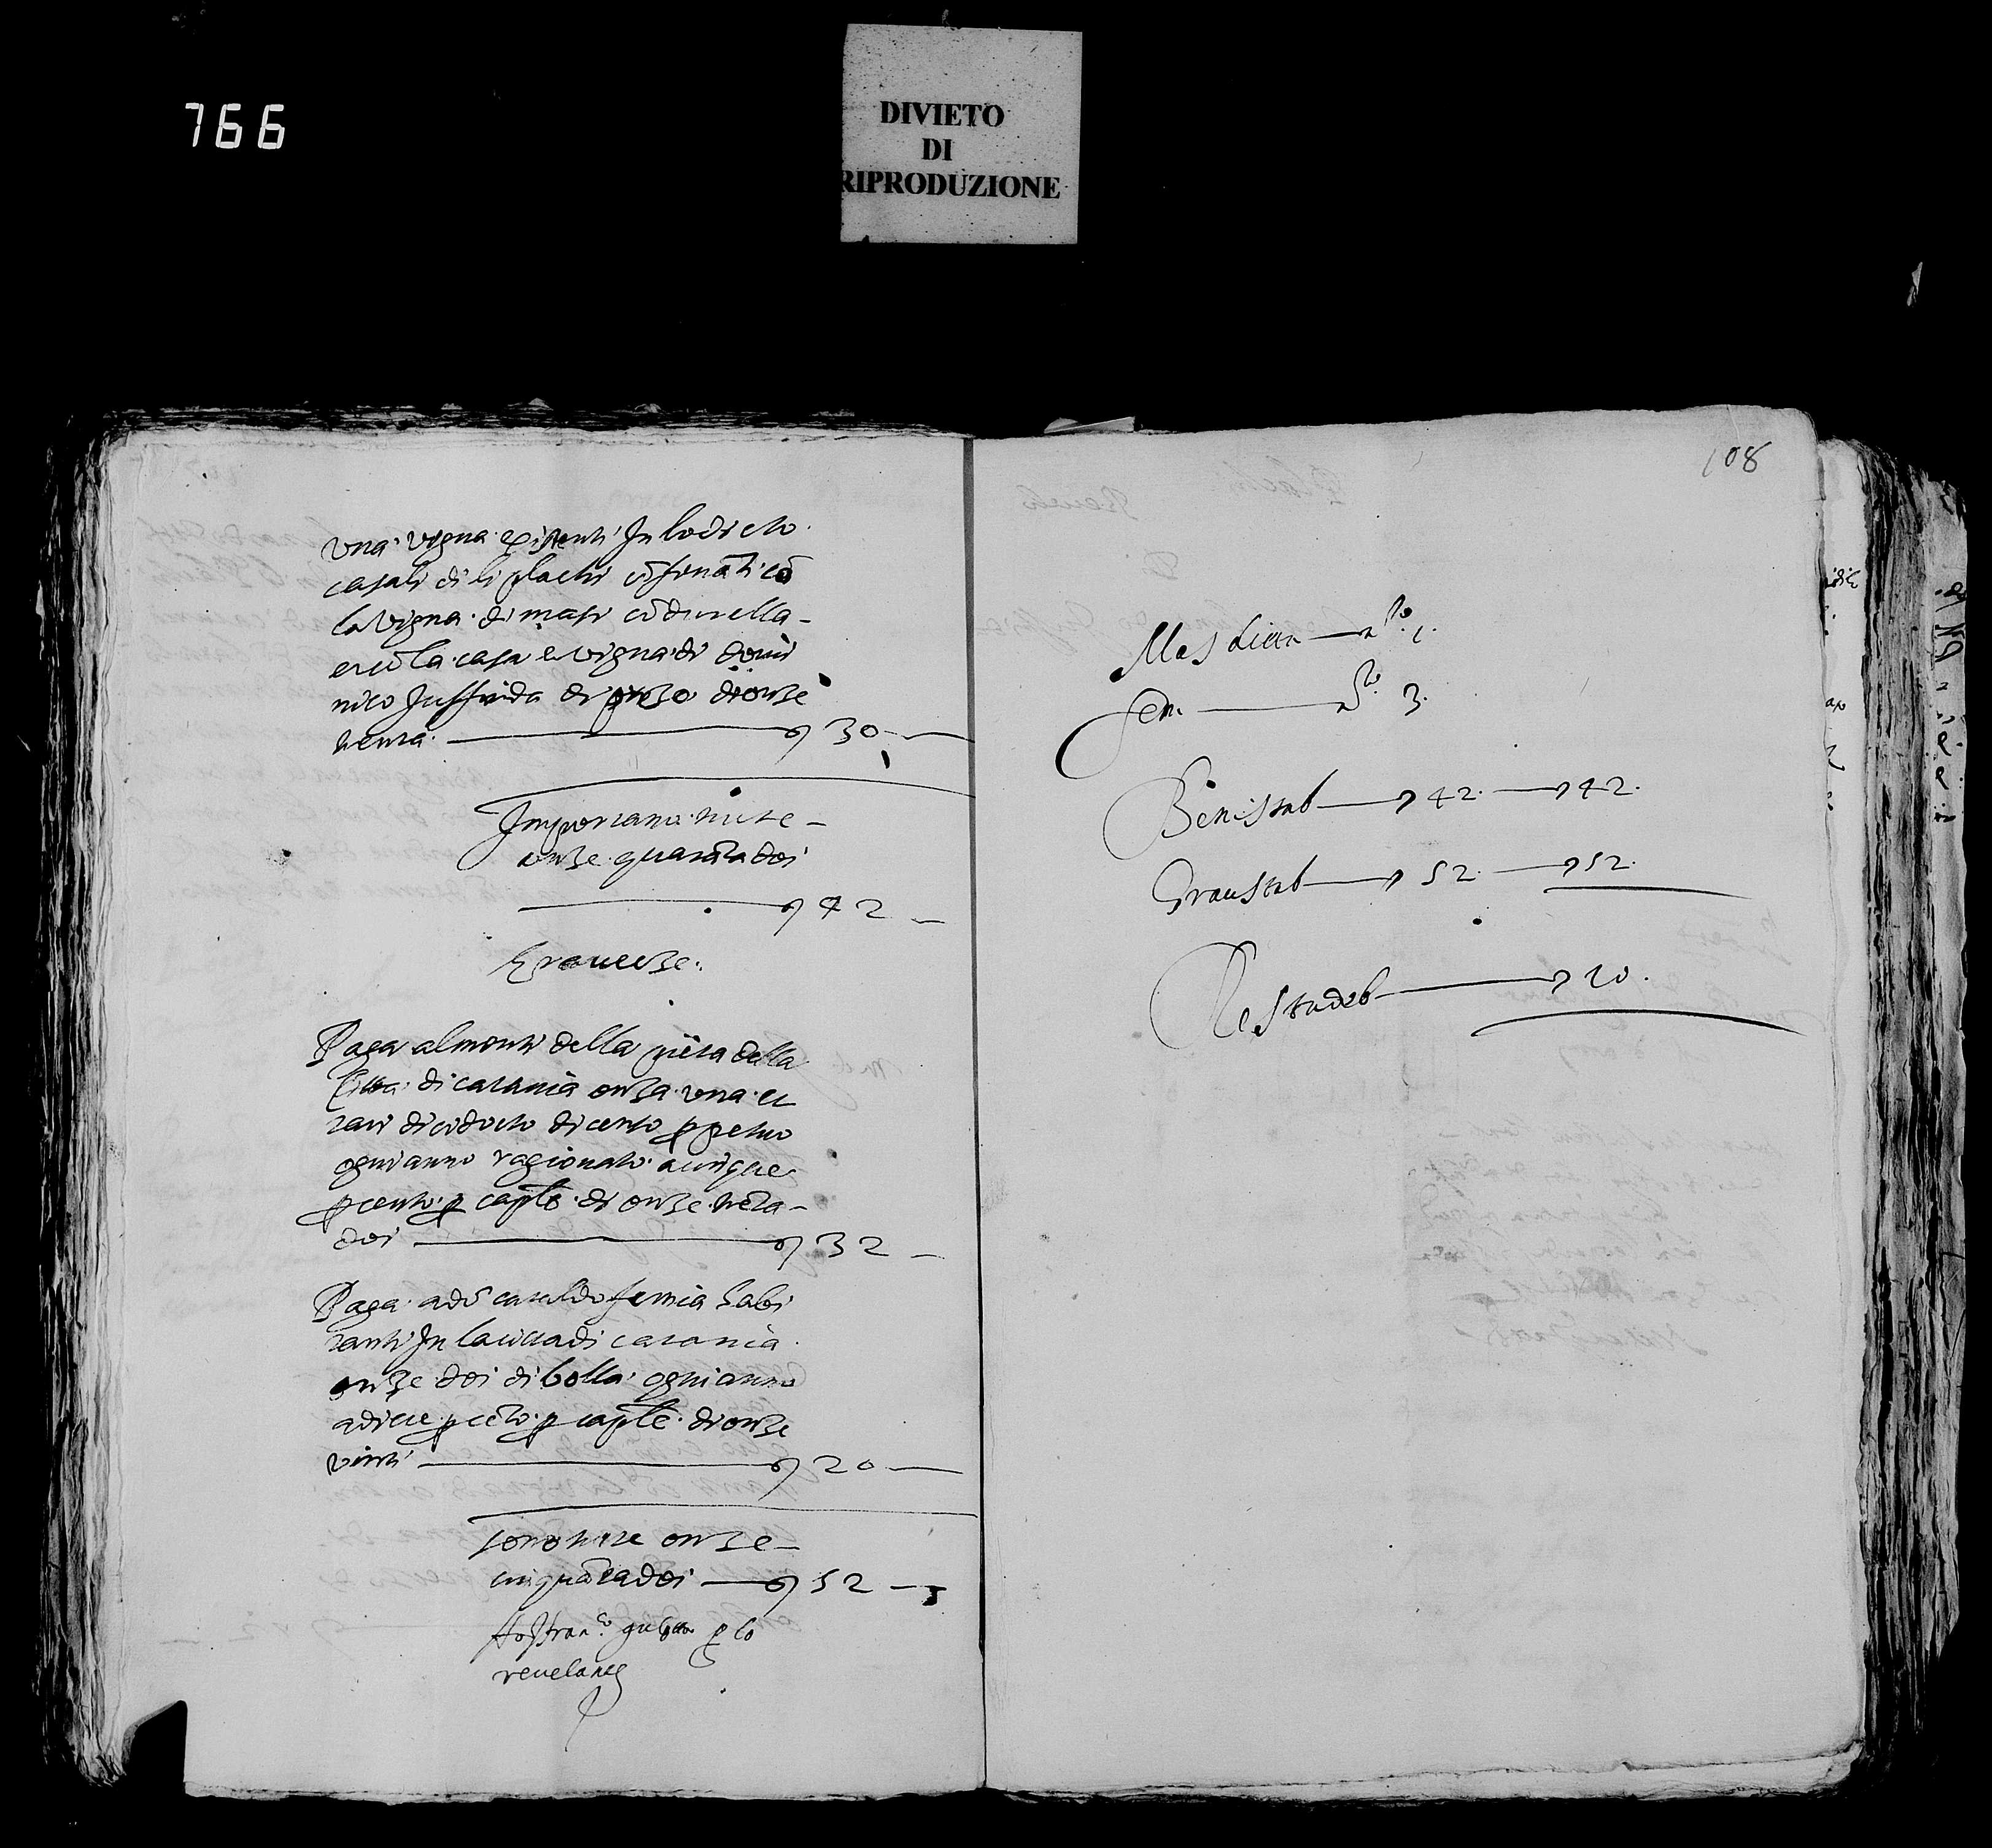 766
DIVIETO
DI
RIPRODUZIONE
una vigna existenti In lo dicto
casali di li plachi cõfinãti cõ
la vigna di masi
et cũ la casa e vigna di domi
nico Juffrida di prezo di onze
trenta 30
Importano tutte
onze quarãtadoi
42
Graveze.
Paga al monti della pieta della
Citta di catania onza una et
tari dicidocto di censo ppetuo
ogni anno ragionato a cinque
p cento p capᵗᵉ di onze trẽta
doi 32
Paga a dõ cataldo femia habi
tanti In la citta di catania
onze doi di bolla ogni anno
a dieci p cẽto p capᵗᵉ di onze
vinti 20
sono tutte onze
cinquãtadoi 52
p lo
revelante
108
Mas 1.
fem. 3.
Beni stab 42. 42.
Grau stab 52. 52.
Resta deb 10.